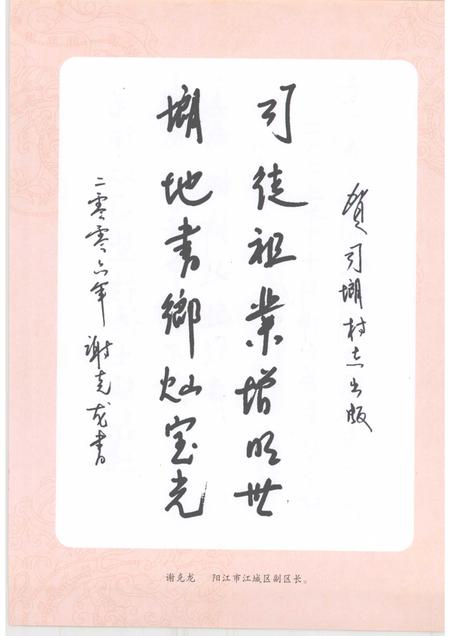 贺司塱村志出版
司徒祖業增明世
塱地書鄉灿宝光
二零零六年谢克龙書
谢克龙 阳江市江城区副区长。